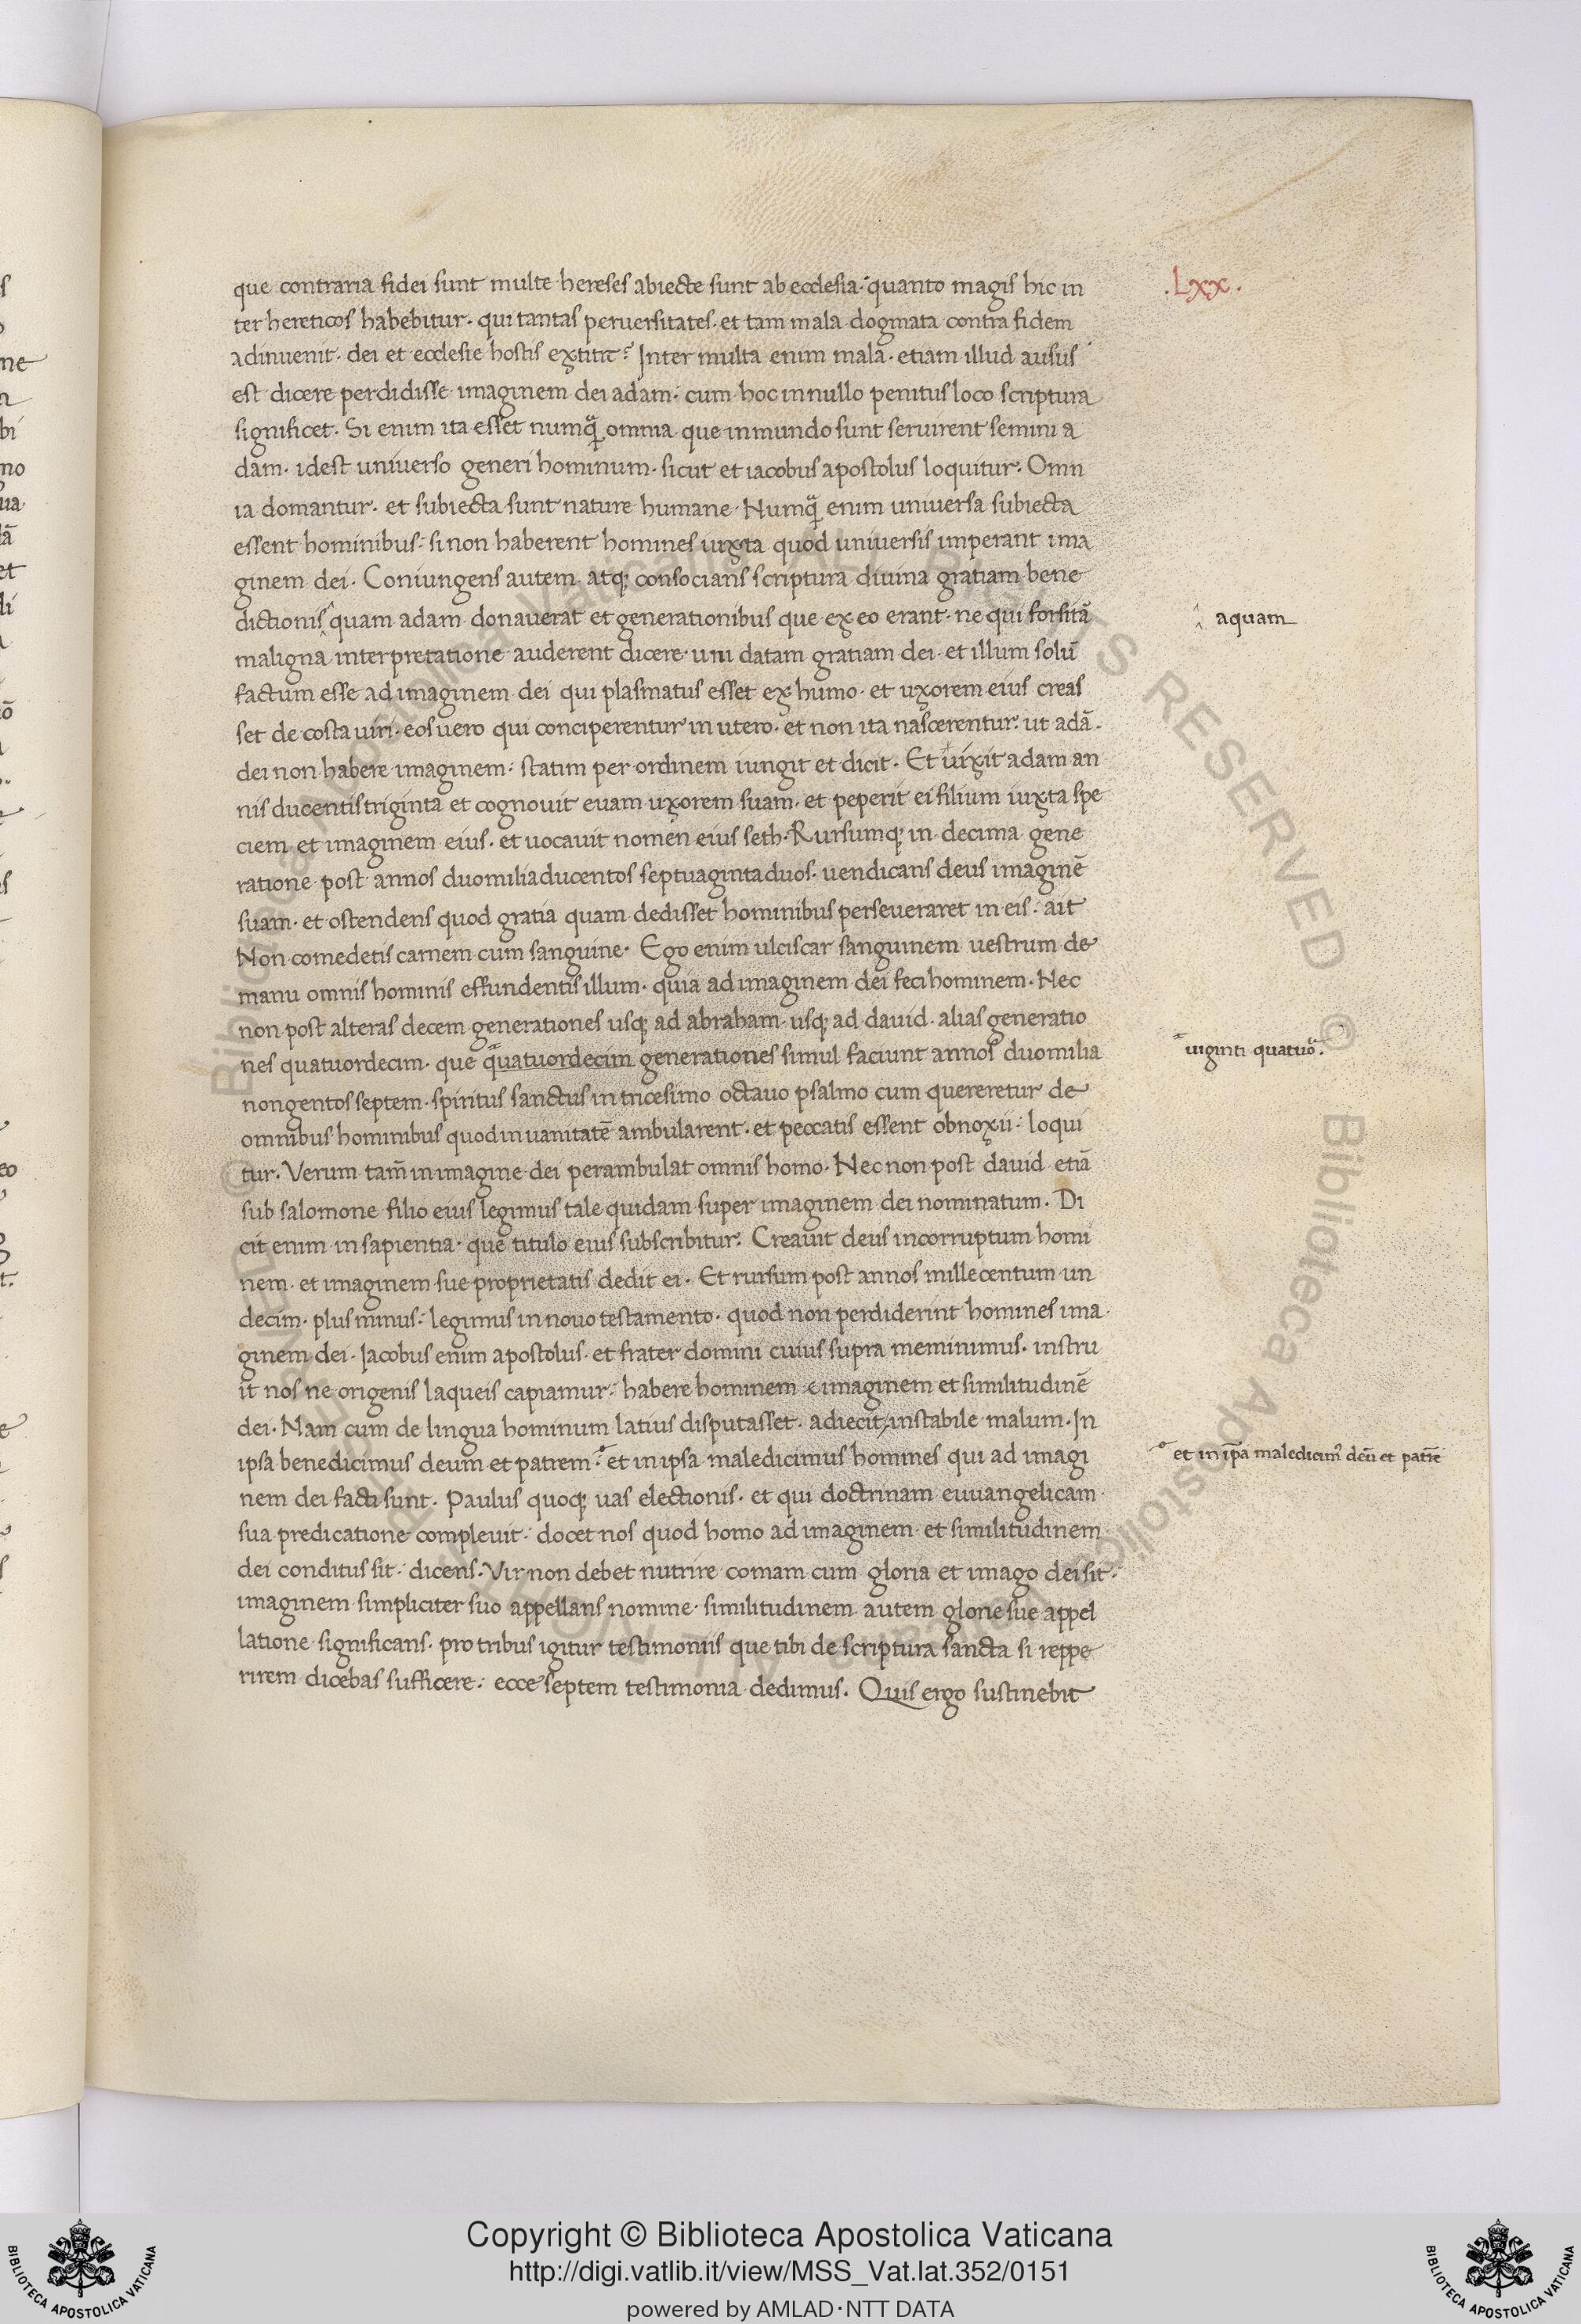 .Lxx.
que contraria fidei sunt multe hereses abiecte sunt ab ecclesia: quanto magis hic in
ter hereticos habebitur. qui tantas peruersitates. et tam mala dogmata contra fidem
adinuenit. dei et ecclesie hostis extitit? Inter multa enim mala. etiam illud ausus
est dicere perdidisse imaginem dei adam: cum hoc in nullo penitus loco scriptura
significet. Si enim ita esset numq̃ omnia que in mundo sunt seruirent semini a
dam. idest universo generi hominum. sicut et iacobus apostolus loquitur. Omn
ia domantur. et subiecta sunt nature humane. Numq̃ enim universa subiecta
essent hominibus: si non haberent homines iuxta quod universis imperant ima
ginem dei. Coniungens autem atq; consocians scriptura divina gratiam bene
dictionis quam adam donauerat et generationibus que ex eo erant. ne qui forsitā
aquam
maligna interpretatione auderent dicere. uni datam gratiam dei. et illum solū
factum esse ad imaginem dei qui plasmatus esset ex humo. et uxorem eius creas
set de costa uiri. eos uero qui conciperentur in utero. et non ita nascerentur. ut adā.
dei non habere imaginem: statim per ordinem iungit et dicit. Et uixit adam an
nis ducentis triginta et cognovit evam uxorem suam. et peperit ei filium iuxta spe
ciem et imaginem eius. et uocavit nomen eius seth. Rursumq; in decima gene
ratione post annos duomilia ducentos septuaginta duos. uendicans deus imaginē
suam. et ostendens quod gratia quam dedisset hominibus perseueraret in eis: ait
Non comedetis carnem cum sanguine. Ego enim ulciscar sanguinem uestrum de
manu omnis hominis effundentis illum. quia ad imaginem dei feci hominem. Nec
non post alteras decem generationes usq; ad abraham. usq; ad david. alias generatio
nes quatuordecim. que quatuordecim generationes simul faciunt annos duomilia
uiginti quatuo᷑.
nongentos septem. spiritus sanctus in tricesimo octauo psalmo cum quereretur de
omnibus hominibus quod in uanitatē ambularent. et peccatis essent obnoxii: loqui
tur. Verum tam̄ in imagine dei perambulat omnis homo. Nec non post david etiā
sub salomone filio eius legimus tale quidam super imaginem dei nominatum. Di
cit enim in sapientia. que titulo eius subscribitur. Creavit deus incorruptum homi
nem. et imaginem sue proprietatis dedit ei. Et rursum post annos mille centum un
decim. plus minus: legimus in nouo testamento. quod non perdiderint homines ima
ginem dei. Jacobus enim apostolus. et frater domini cuius supra meminimus. instru
it nos ne origenis laqueis capiamur: habere hominem imaginem et similitudinē
dei. Nam cum de lingua hominum latius disputasset. adiecit, instabile malum. In
ipsa benedicimus deum et patrem: et in ipsa maledicimus homines qui ad imagi
et in ip̄a maledicim᷒ deū et patrē
nem dei facti sunt. Paulus quoq; uas electionis. et qui doctrinam euuangelicam
sua predicatione complevit: docet nos quod homo ad imaginem et similitudinem
dei conditus sit: dicens. Vir non debet nutrire comam cum gloria et imago dei sit.
imaginem simpliciter suo appellans nomine. similitudinem autem glorie sue appel
latione significans. pro tribus igitur testimoniis que tibi de scriptura sancta si reppe
rirem dicebas sufficere: ecce septem testimonia dedimus. Quis ergo sustinebit
Copyright © Biblioteca Apostolica Vaticana
http://digi.vatlib.it/view/MSS_Vat.lat.352/0151
powered by AMLAD·NTT DATA